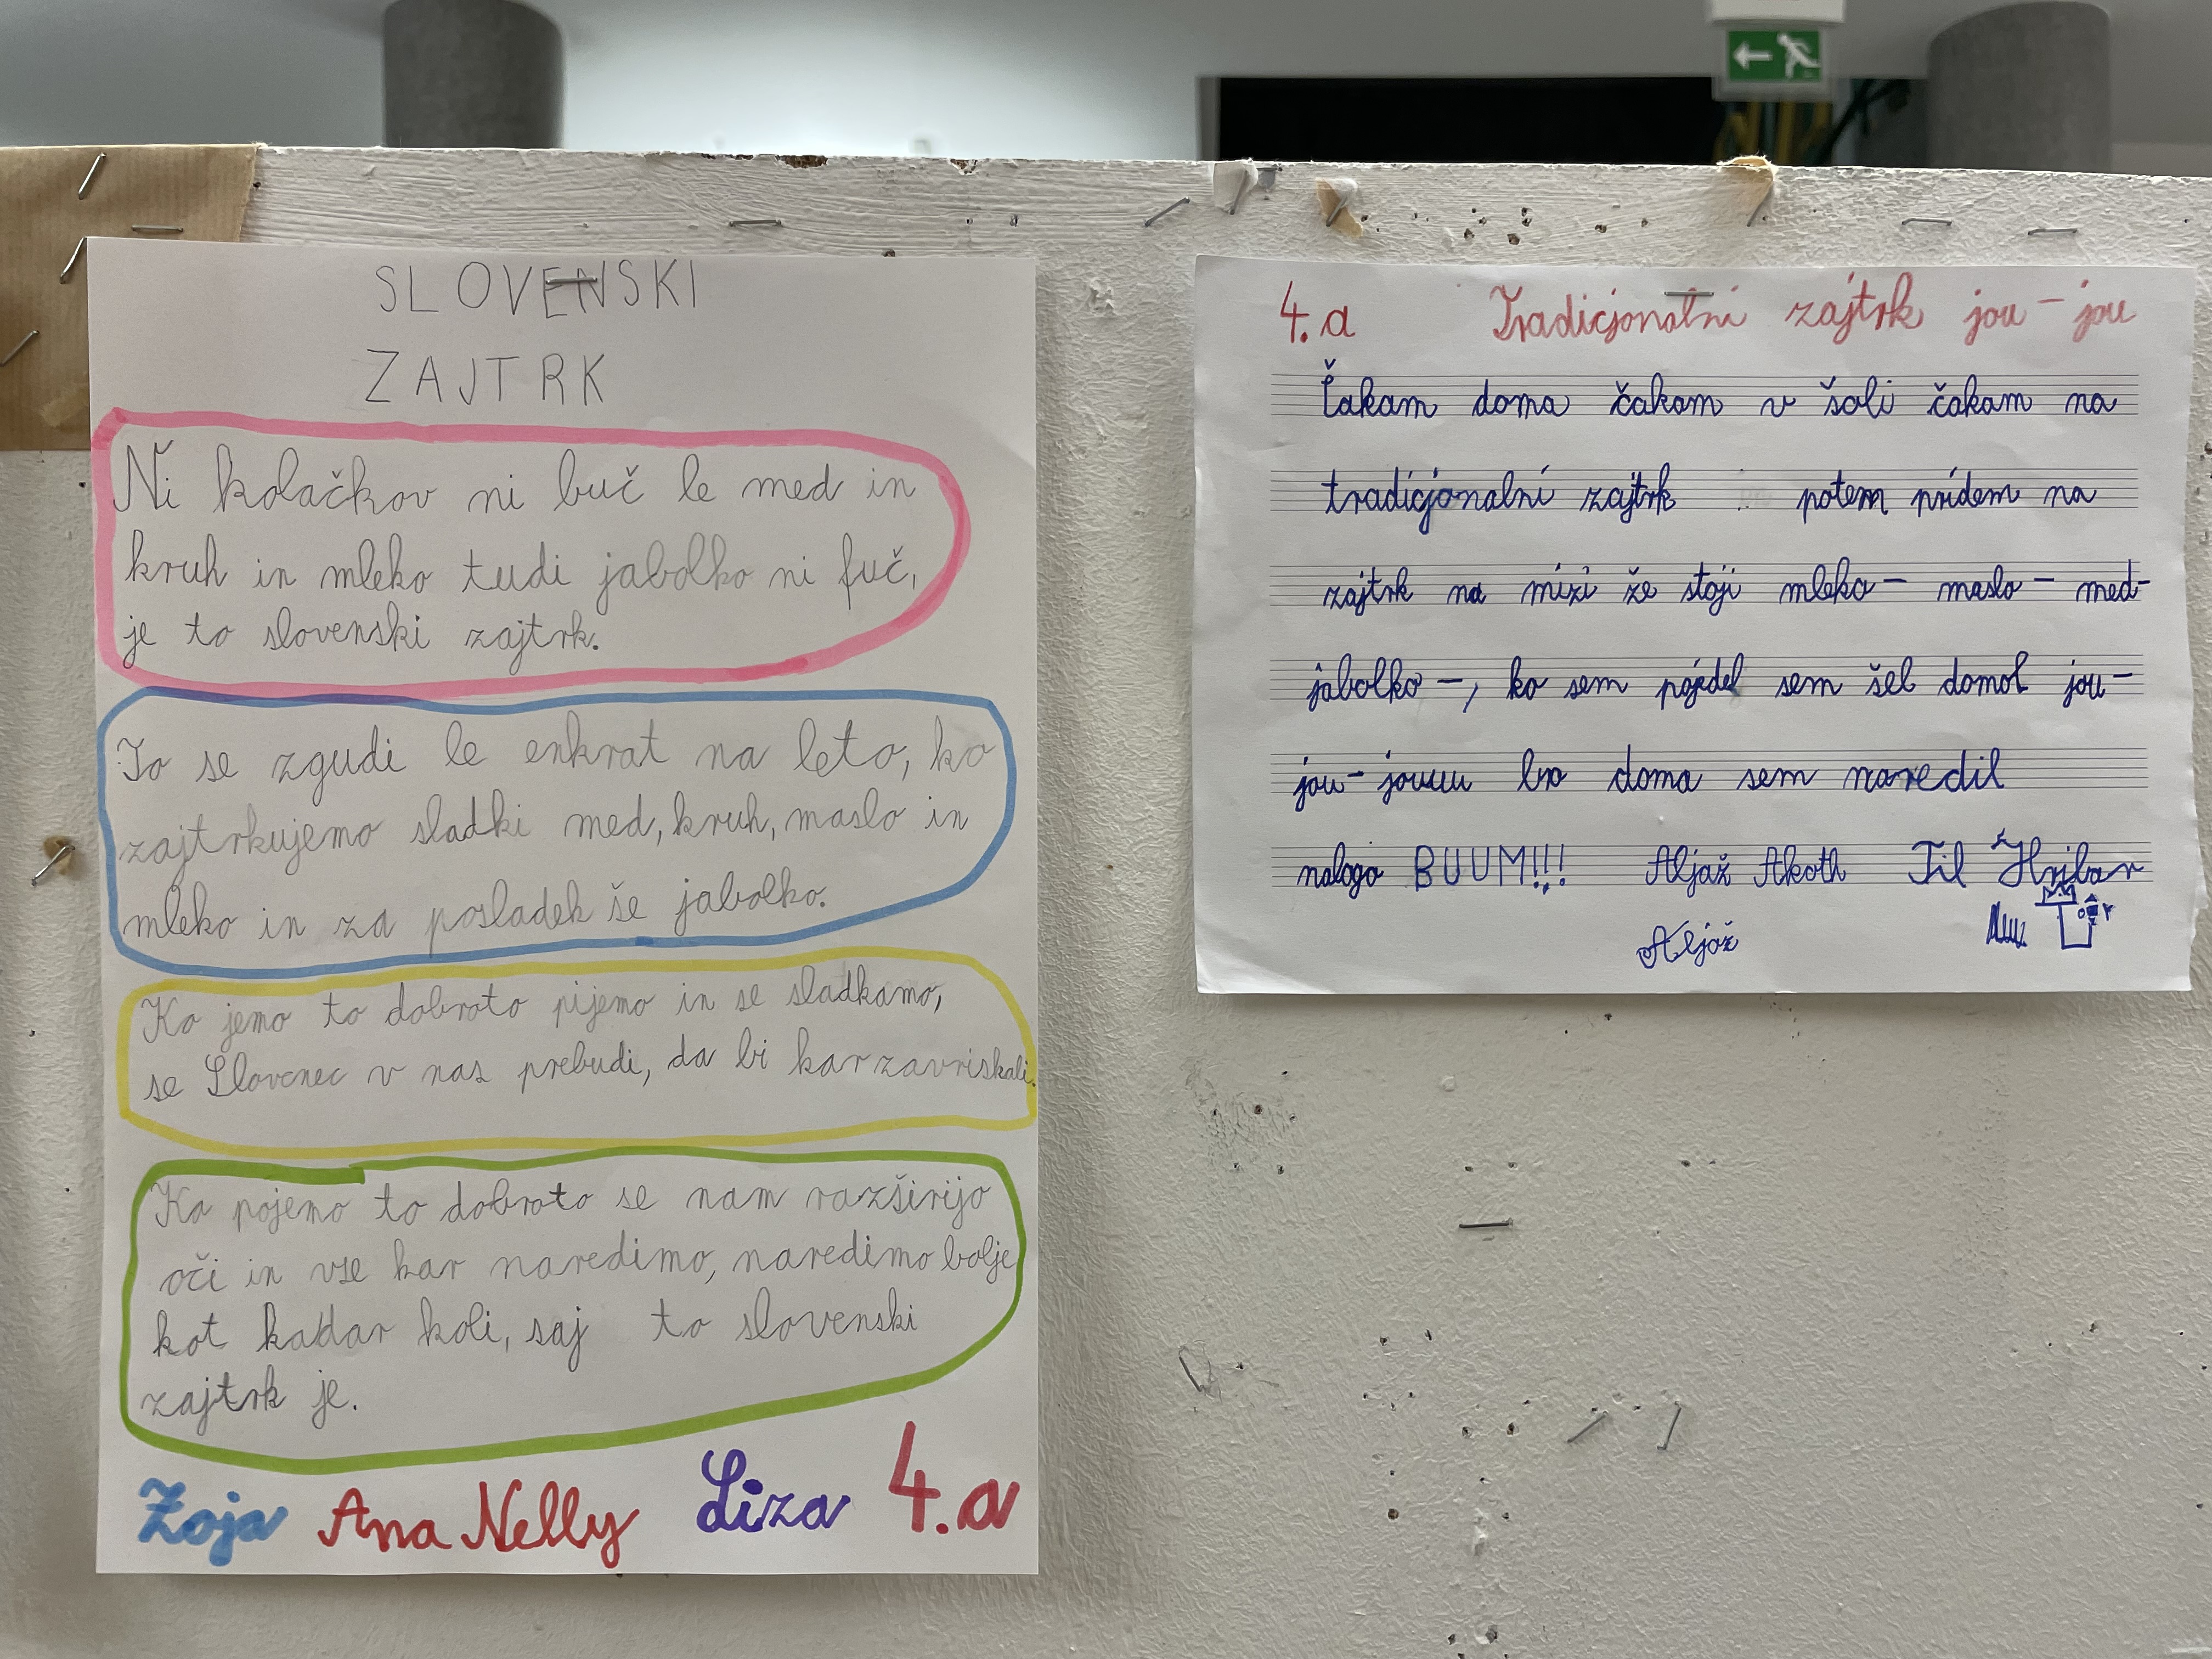 SLOVENSKI
ZAJTRK
Ni kolačkov ni buč le med in
kruh in mleko tudi jabolko ni fuč,
je to slovenski zajtrk.
To se zgudi le enkrat na leto, ko
zajtrkujemo sladki med, kruh, maslo in
mleko in za posladek še jabolko.
Ko jemo to dobroto pijemo in se sladkamo,
se Slovenec v nas prebudi, da bi kar zavriskali.
Ko pojemo to dobroto se nam razširijo
oči in vse kar naredimo, naredimo bolje
kot kadar koli, saj to slovenski
zajtrk je.
Zoja Ana Nelly Liza 4.a
4.a Tradicjonalni zajtrk jou-jou
Čakam doma čakam v šoli čakam na
tradicjonalni zajtrk potem pridem na
zajtrk na mizi že stoji mleko- maslo- med-
jabolko -, ko sem pojedel sem šel domol jou-
jou- jouuu doma sem naredil
nalogo BUUM!!! Aljaž Akoth Til Hribar
Aljož